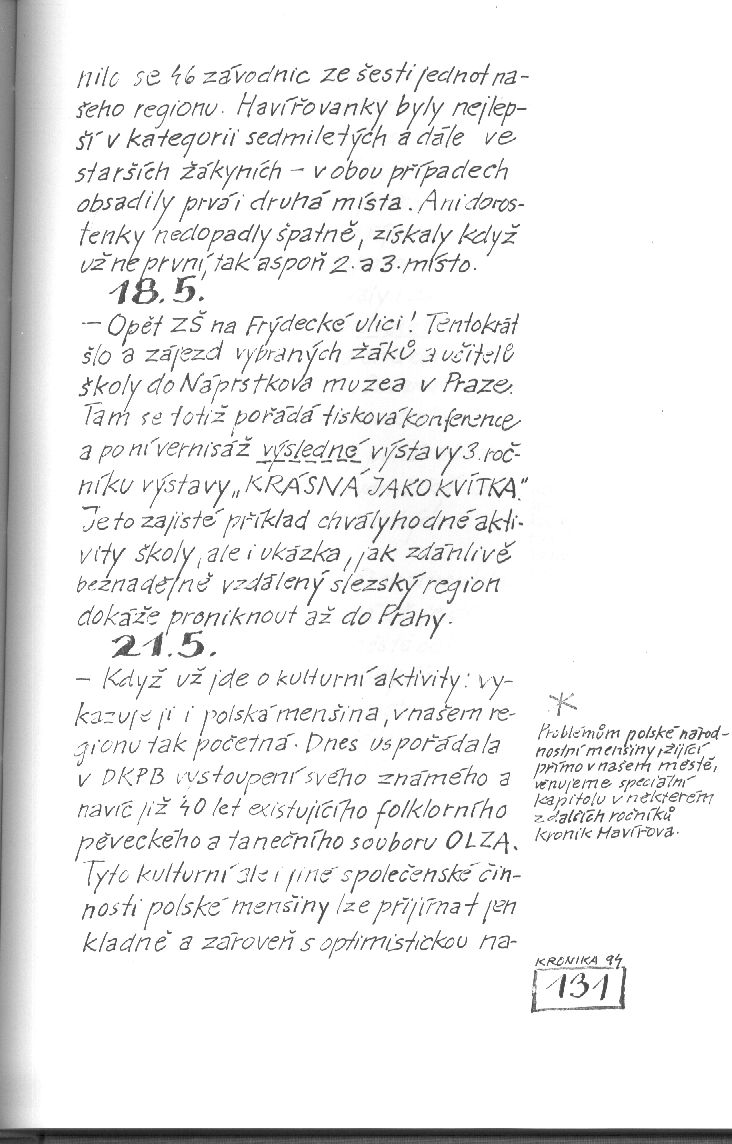 nilo se 46 závodnic ze šesti jednot na-
šeho regionu. Havířovanky byly nejlep-
ší v kategorii sedmiletých a dále ve
starších žákyních – v obou případech
obsadily prvá i druhá místa. Ani doros-
tenky nedopadly špatně, získaly když
už ne první, tak aspoň 2. a 3. místo.
18.5.
– Opět ZŠ na Frýdecké ulici! Tentokrát
šlo a zájezd vybraných žáků a učitelů
školy do Náprstkova muzea v Praze.
Tam se totiž pořádá tisková konference
a po ní vernisáž výsledné výstavy 3. roč-
níku výstavy „KRÁSNÁ JAKO KVÍTKA."
Je to zajisté příklad chvályhodné akti-
vity školy, ale i ukázka, jak zdánlivě
beznadějně vzdálený slezský region
dokáže proniknout až do Prahy.
21.5.
– Když už jde o kulturní aktivity: vy-
kazuje ji i polská menšina, v našem re-
gionu tak početná. Dnes uspořádala
v DKPB vystoupení svého známého a
navíc již 40 let existujícího folklorního
pěveckého a tanečního souboru OLZA.
Tyto kulturní ale i jiné společenské čin-
nosti polské menšiny lze přijímat jen
kladně a zároveň s optimistickou na-
*
Problémům polské národ-
nostní menšiny, žijící
přímo v našem městě,
věnujeme speciální
kapitolu v některém
z dalších ročníků
kronik Havířova.
KRONIKA 94
131